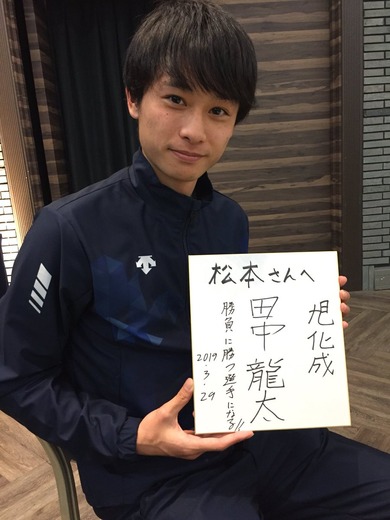 松本さんへ
旭化成
田中 龍太
勝負に勝つ選手になる!!
2019.3.29